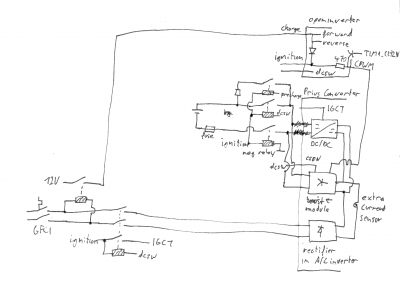 openinverter
charge
forward
reverse
ignition
470
CPWM
dcsw
Prius Converter
precharge
IGCT
dcsw
fuse
ignition
DC/DC
neg relay
dcsw
12V
module
extra
current
sensor
GFCI
ignition
IGCT
dcsw
rectifier
in A/C inverter